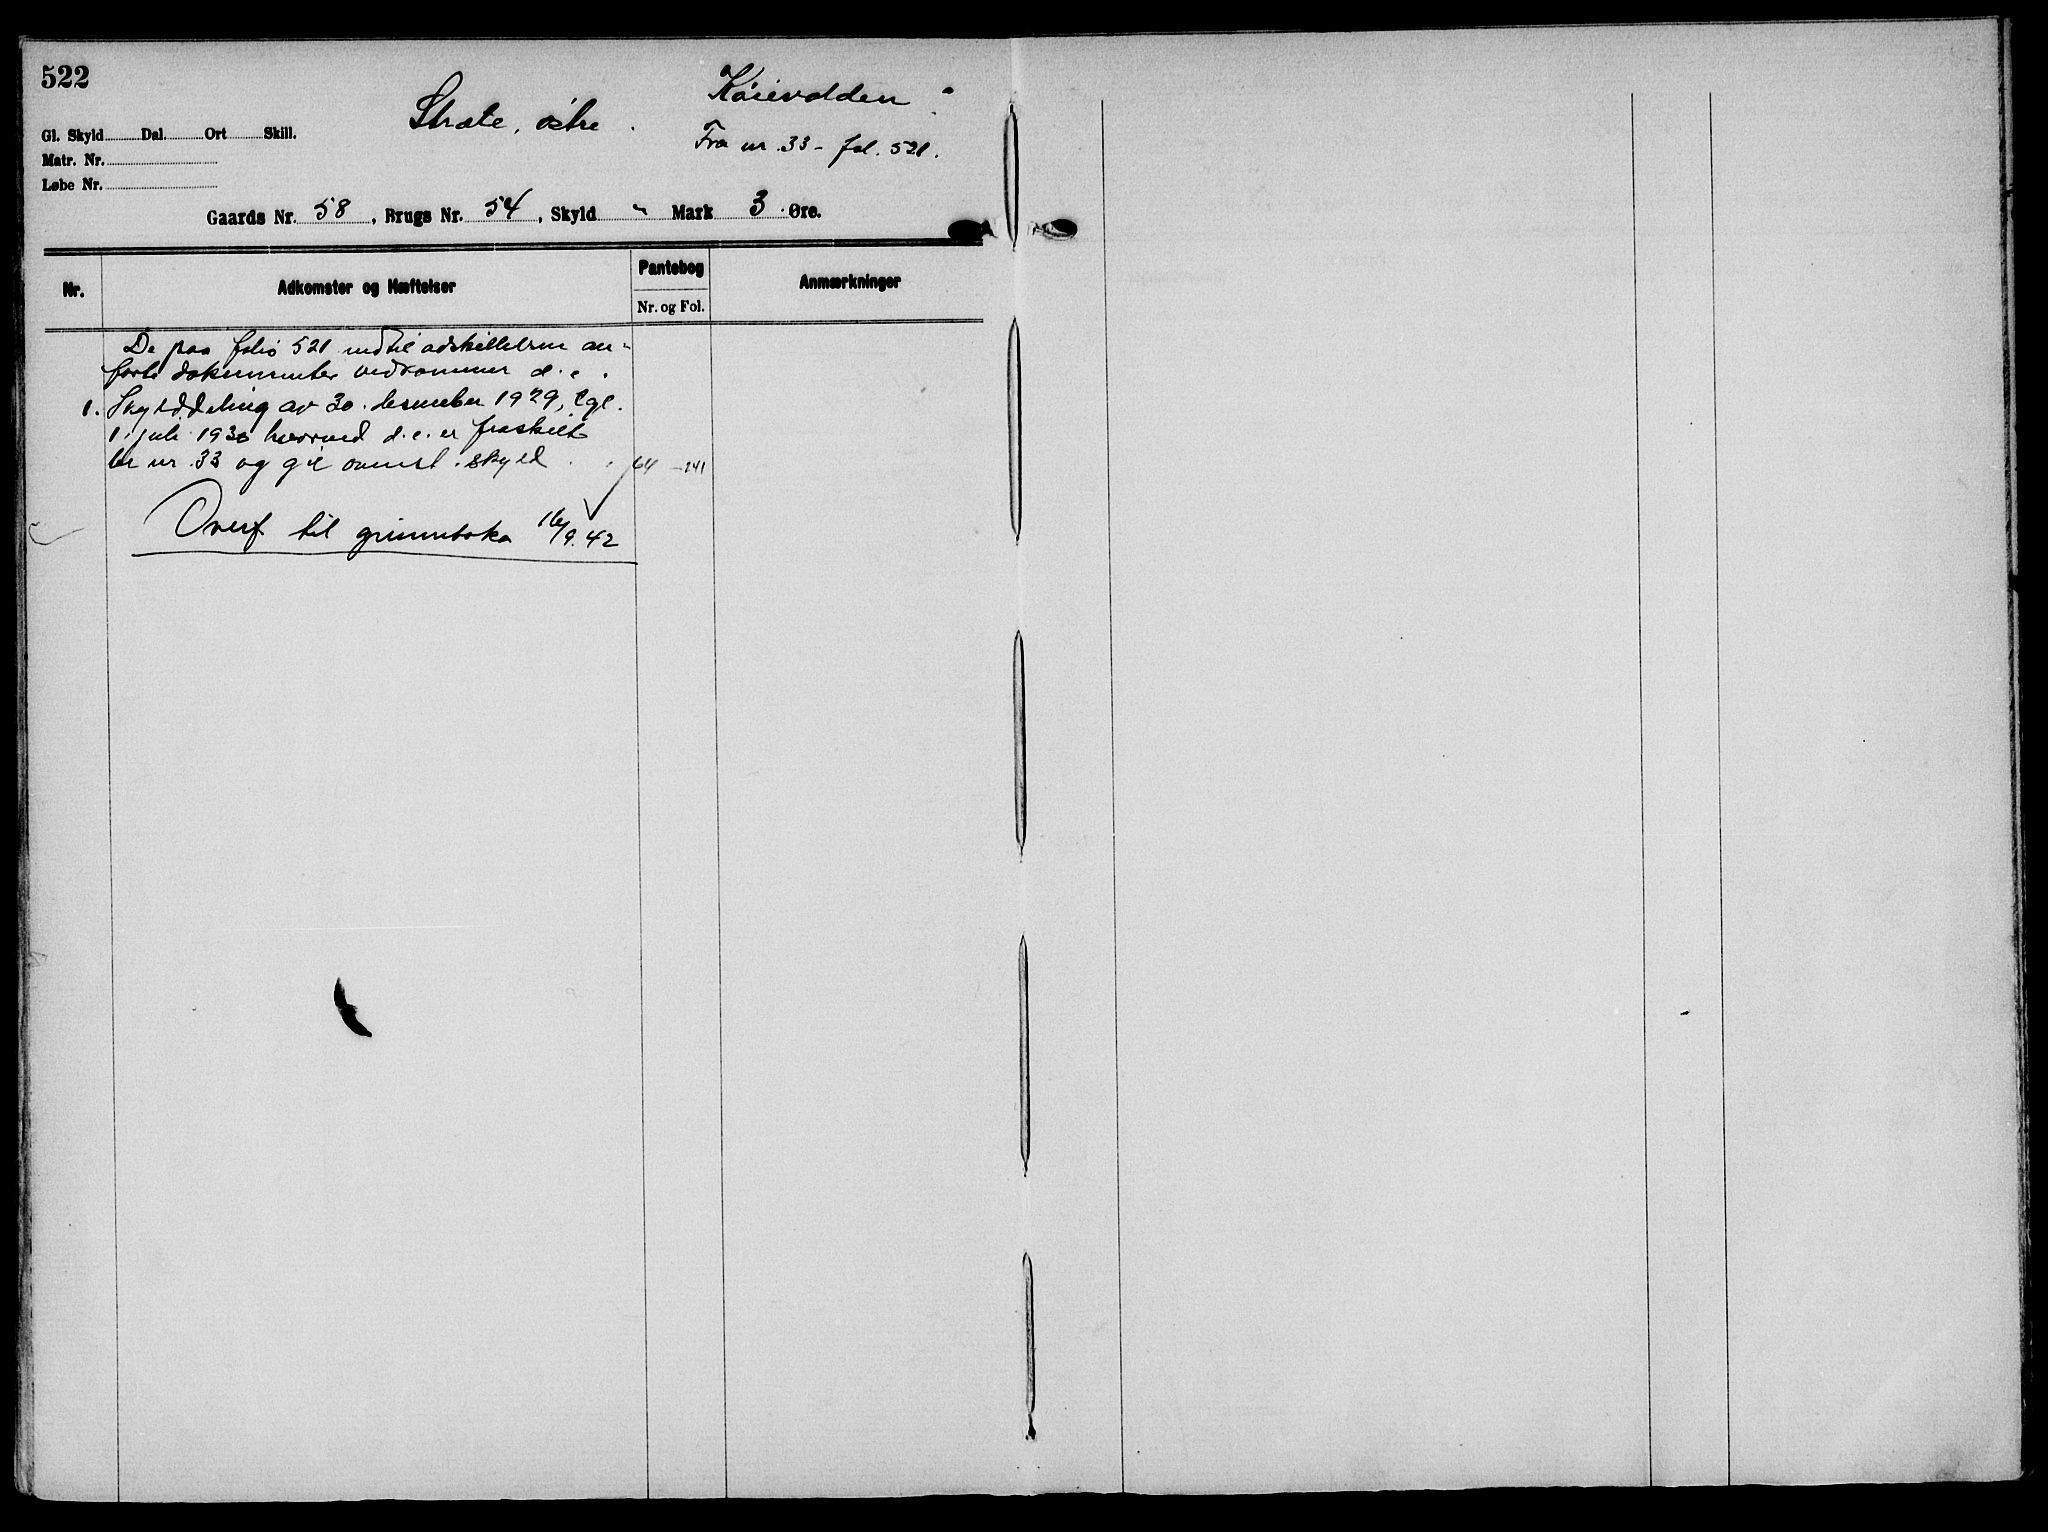 522
Køievolden
Stræte, østre.
Fra nr. 33 - fol. 521.
Gl. Skyld Dal. Ort Skill.
Matr. Nr.
Løbe Nr.
Gaards Nr. 58, Brugs Nr. 54, Skyld " Mark 3 Øre.
Nr. Adkomster og Hæftelser Pantebog Anmærkninger
Nr. og Fol.
De paa folio 521 indtil adskillelsen an-
førte dokumenter vedkommer d.e.
1. Skylddeling av 30. desember 1929, tgl.
1. juli 1930 hvorved d.e. er fraskilt
br nr. 33 og git ovenst. skyld . . 64 - 241
Overf til grunnboka 16/9.42